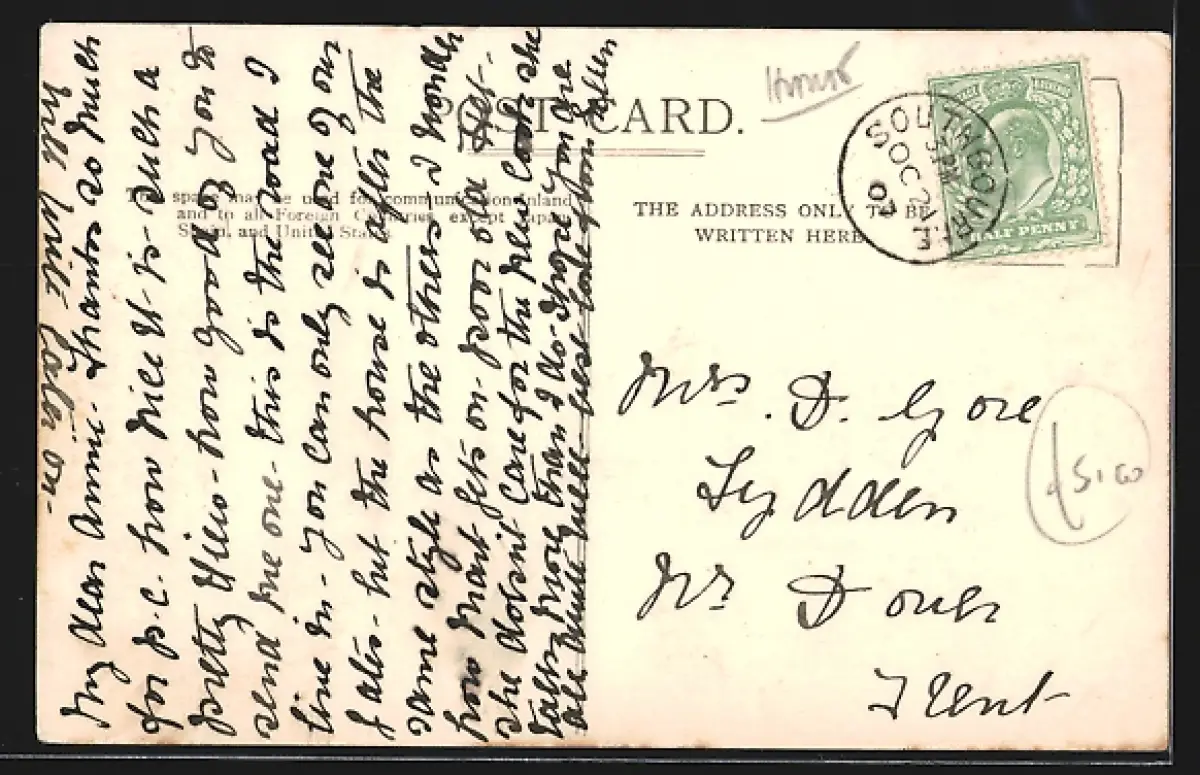 POST CARD.
This space may be used for communication Inland
and to all Foreign Countries, except Japan,
Spain, and United States.
THE ADDRESS ONLY TO BE
WRITTEN HERE
HALF PENNY
SOUTHBOURNE
5 PM
OC 21
07
Mrs. D. Gore
Lydden
Nr Dover
Kent
My dear Annie. Thanks so much
for p.c. how nice it is such a
pretty view - how good of you to
send me one - this is the road I
live in - you can only see one of our
gates - but the house is after the
same style as the others I wonder
how Mart gets on - poor old
she doesn't care for the new Cook she
talks more than I do - Hope you are
all quite well - best love from Ellen
will write later on -